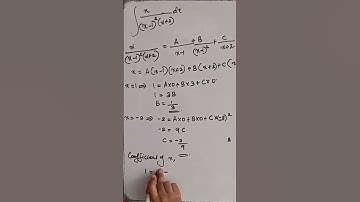 ∫ x/((x-1)²(x+2)) dx
x/((x-1)²(x+2)) = A/(x-1) + B/(x-1)² + C/(x+2)
x = A(x-1)(x+2) + B(x+2) + C(x
x=1 ⇒ 1 = A×0 + B×3 + C×0
1 = 3B
B = 1/3
x=-2 ⇒ -2 = A×0 + B×0 + C×(-3)²
-2 = 9C
C = -2/9
Coefficient of x,
1 =